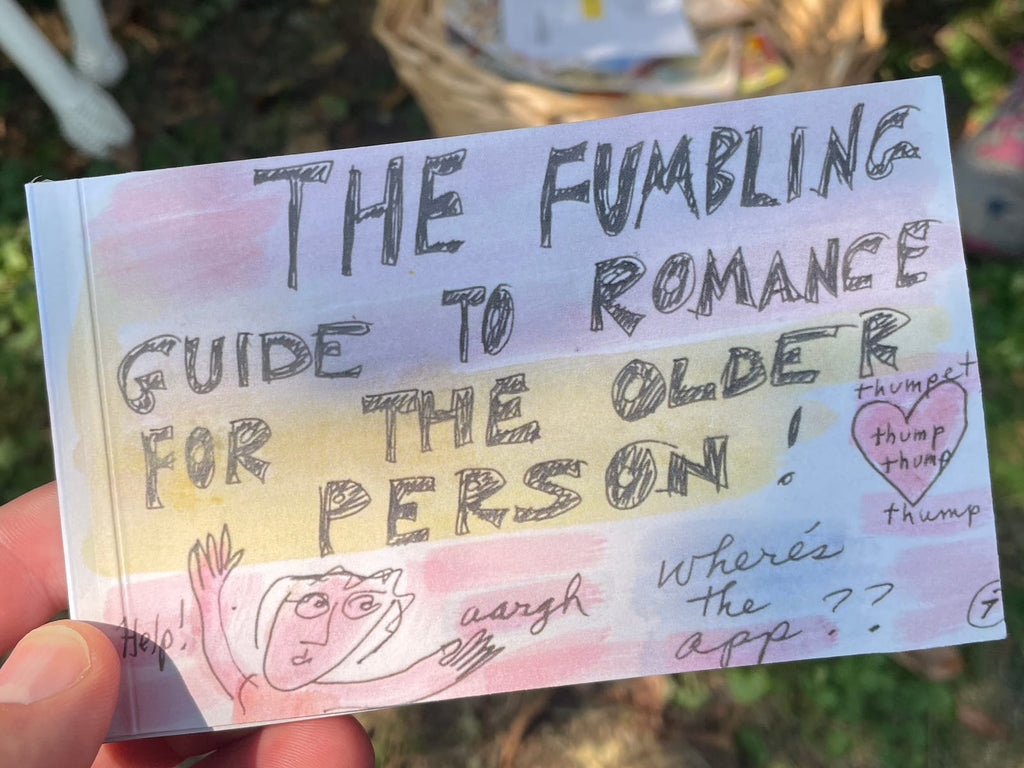 THE FUMBLING
GUIDE TO ROMANCE
FOR THE OLDER
PERSON!
thumpet
thump
thump
thump
Help!
aargh
where's
the
app??